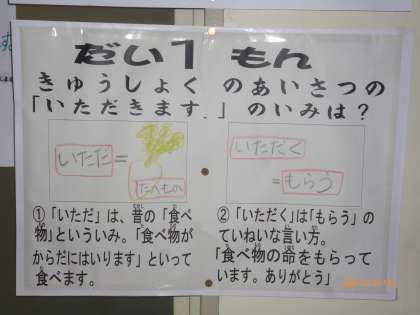 だい1 もん
きゅうしょく のあいさつの
「いただきます.」のいみは？
いただ =
たべもの
いただく
= もらう
①「いただ」は、昔の「食べ
物」といういみ。「食べ物が
からだにはいります」といって
食べます。
②「いただく」は「もらう」の
ていねいな言い方。
「食べ物の命をもらって
います。ありがとう」